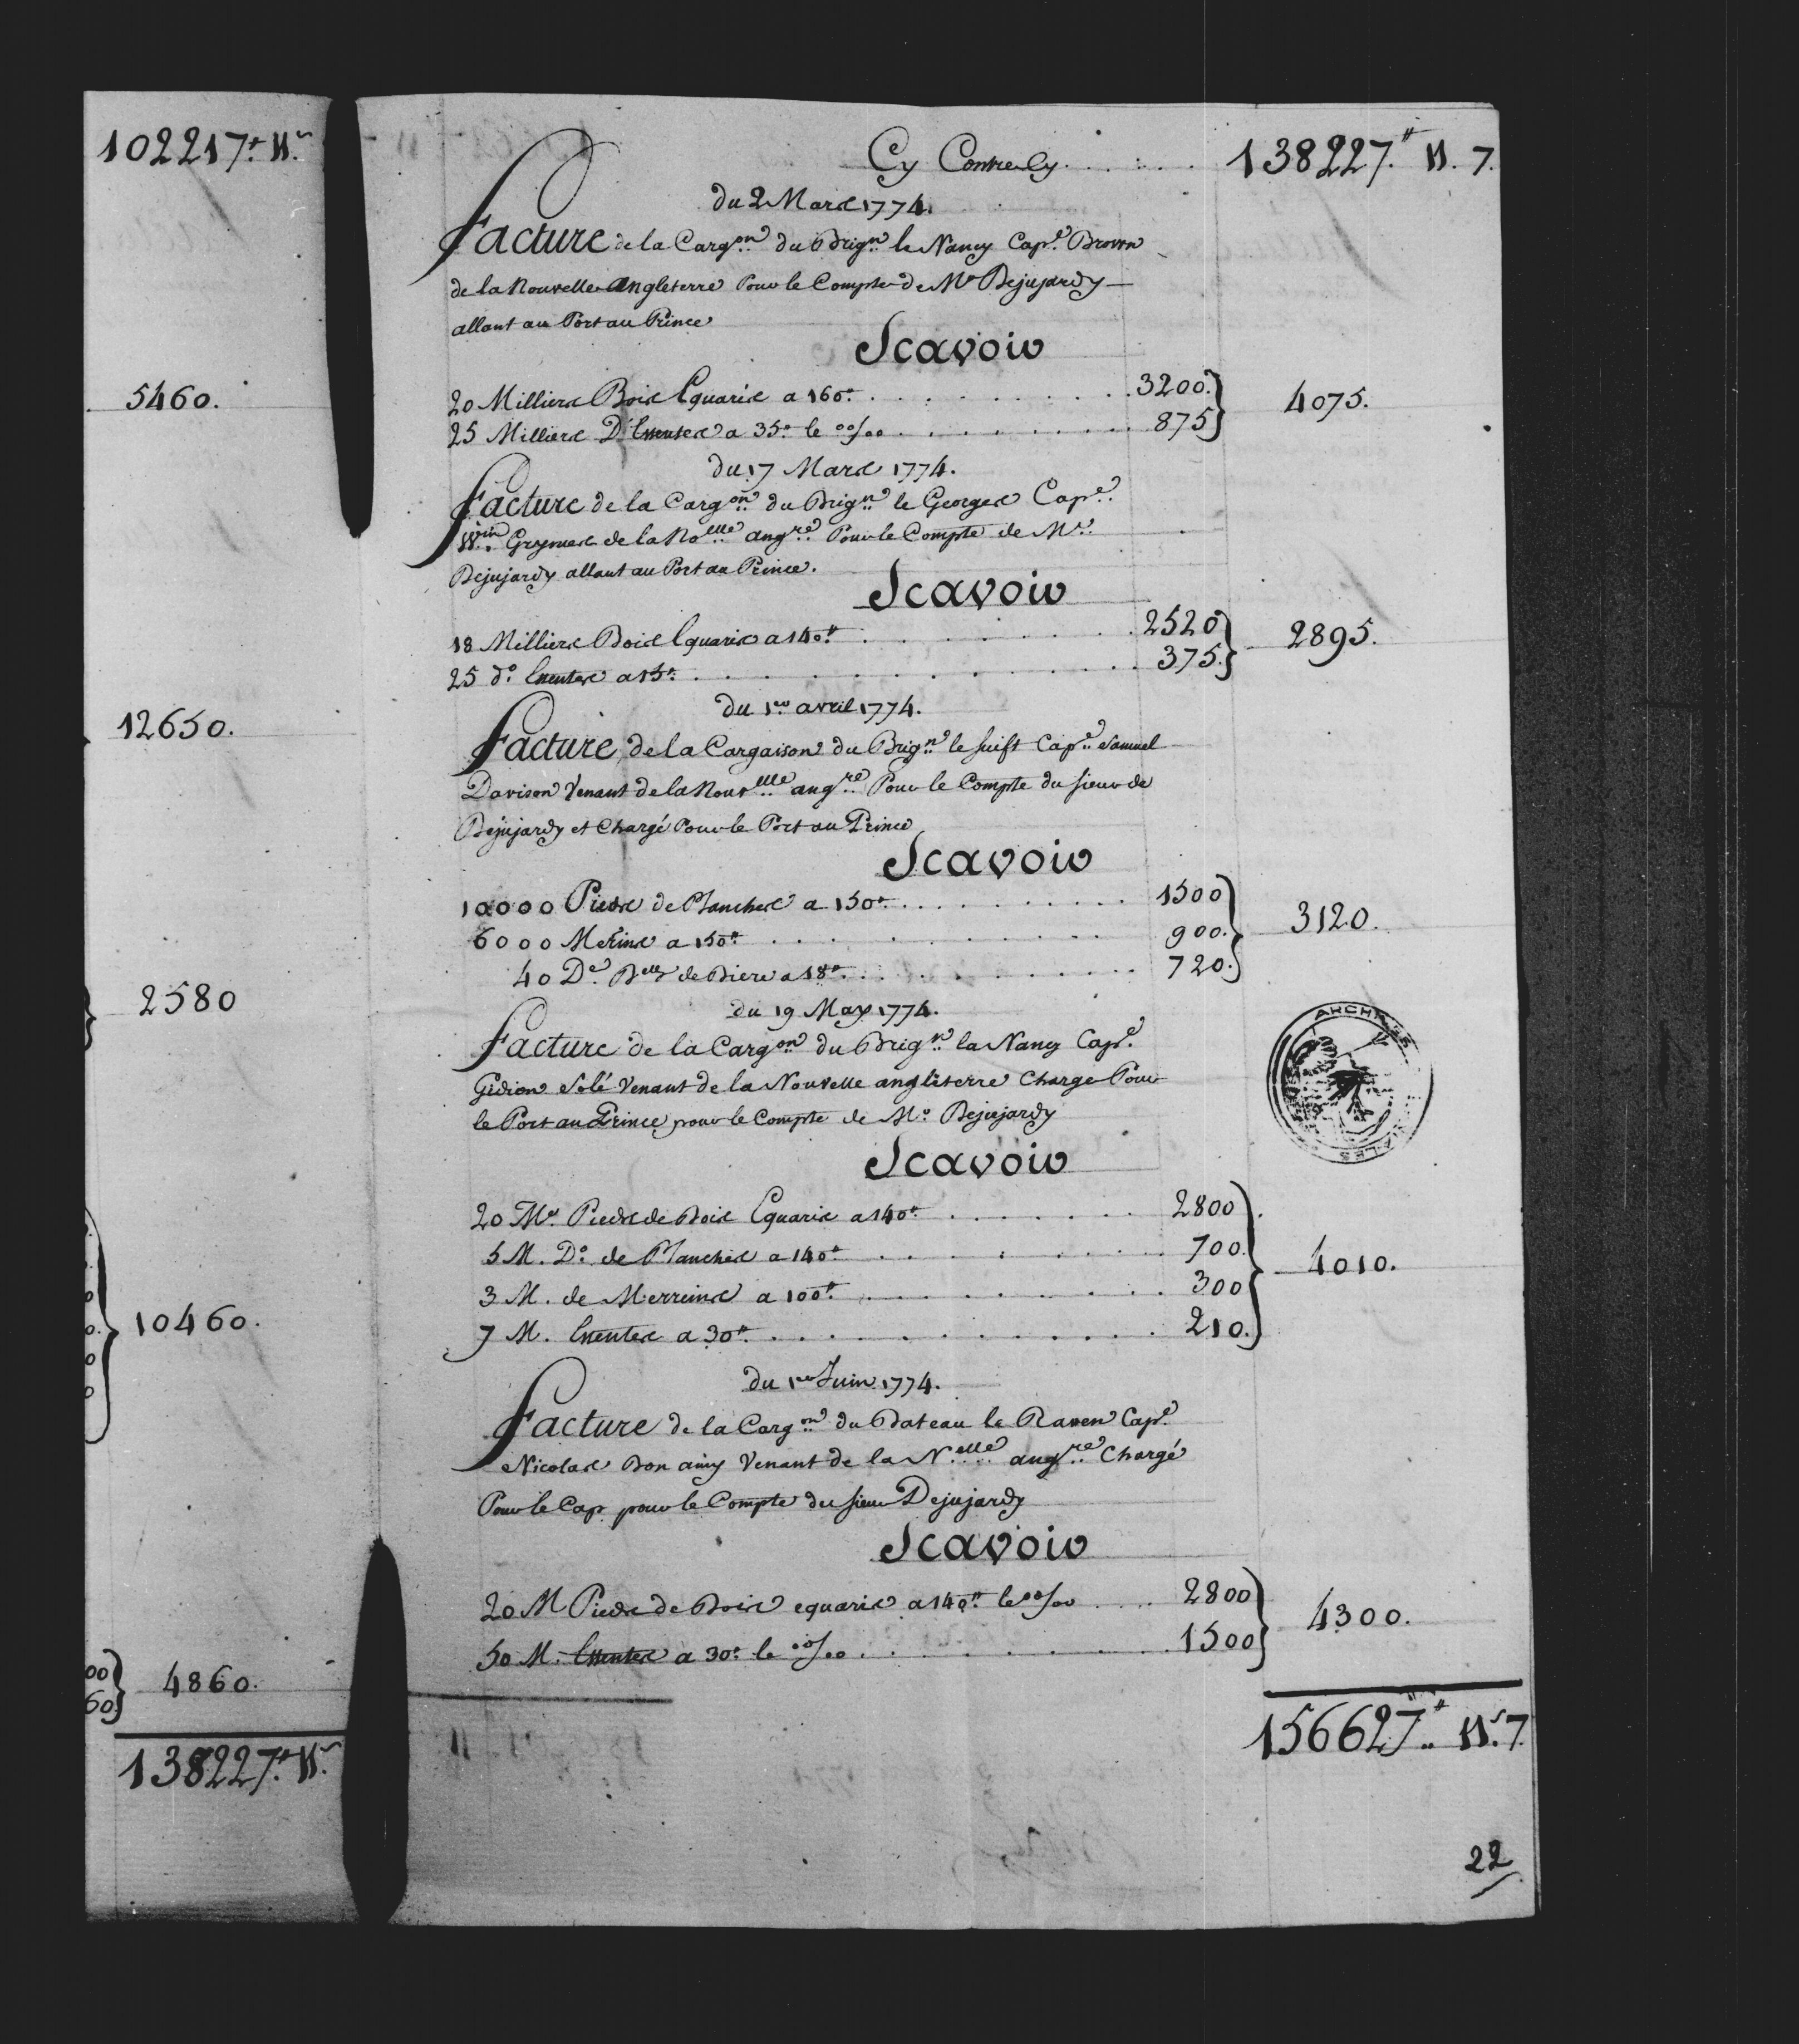 102217.# 11.s
5460.
12650.
2580
10460.
0
0.
0
0
00
60.
4860.
138227.# 11.s
Cy Contre Cy . . . . . 138227.# 11. 7.
du 2 Mars 1774.
facture de la Cargon du Brign le Nancy Cape Brown
de la Nouvelle angleterre Pour le Compte de Mr Dejujardy
allant au Port au Prince
Scavoir
20 Milliers Bois Equaris a 160# . . . . 3200. 4075.
25 Milliers D'Essentes a 35# le 00/00 . . . . 875
du 17 Mars 1774.
facture de la Cargon du Brign le Georges Cape
Wm de la Nolle angre Pour le Compte de Mr
Dejujardy allant au Port au Prince.
Scavoir
18 Milliers Bois Equaris a 140# . . . . 2520 2895.
25 do Essentes a 15# . . . . 375.
du 1er avril 1774.
facture de la Cargaison du Brign le suift Cape Samuel
Davison Venant de la Nouvelle angre Pour le Compte du sieur de
Dejujardy et Chargé Pour le Port au Prince
Scavoir
10000 Pieds de Planches a 150# . . . . 1500 3120.
6000 Merins a 150# . . . . 900.
40 De Blls de Biere a 18# . . . . 720.
du 19 May 1774.
facture de la Cargon du Brign la Nancy Cape
Gidion Solé Venant de la Nouvelle angleterre Charge Pour
le Port au Prince pour le Compte de Mr Dejujardy
Scavoir
20 Mr Pieds de Bois Equaris a 140# . . . . 2800
5 M. Do de Planches a 140# . . . . 700. 4010.
3 M. de Merreins a 100# . . . . 300
7 M. Essentes a 30# . . . . 210.
du 1er Juin 1774.
facture de la Cargon du Bateau le Raven Cape
Nicolas Bon amy Venant de la Nelle angre Chargé
Pour le Cap pour le Compte du sieur Dejujardy
Scavoir
20 M Pieds de Bois equaris a 140# le 00/00 . . . . 2800 4300.
50 M. Essentes a 30# le 00/00 . . . . 1500
156627.# 11.s 7.
22
ARCHIVES